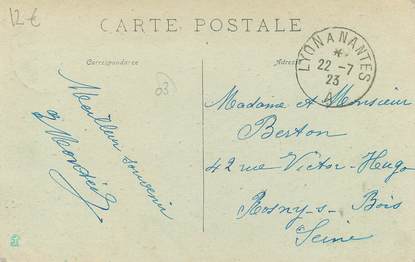 12 €
CARTE POSTALE
Correspondance
Adresse
LYON A NANTES
*
22 -7
23
A
03
Meilleur souvenir
Madame et Monsieur
Berton
42 rue Victor-Hugo
Rosny-s-Bois
Seine